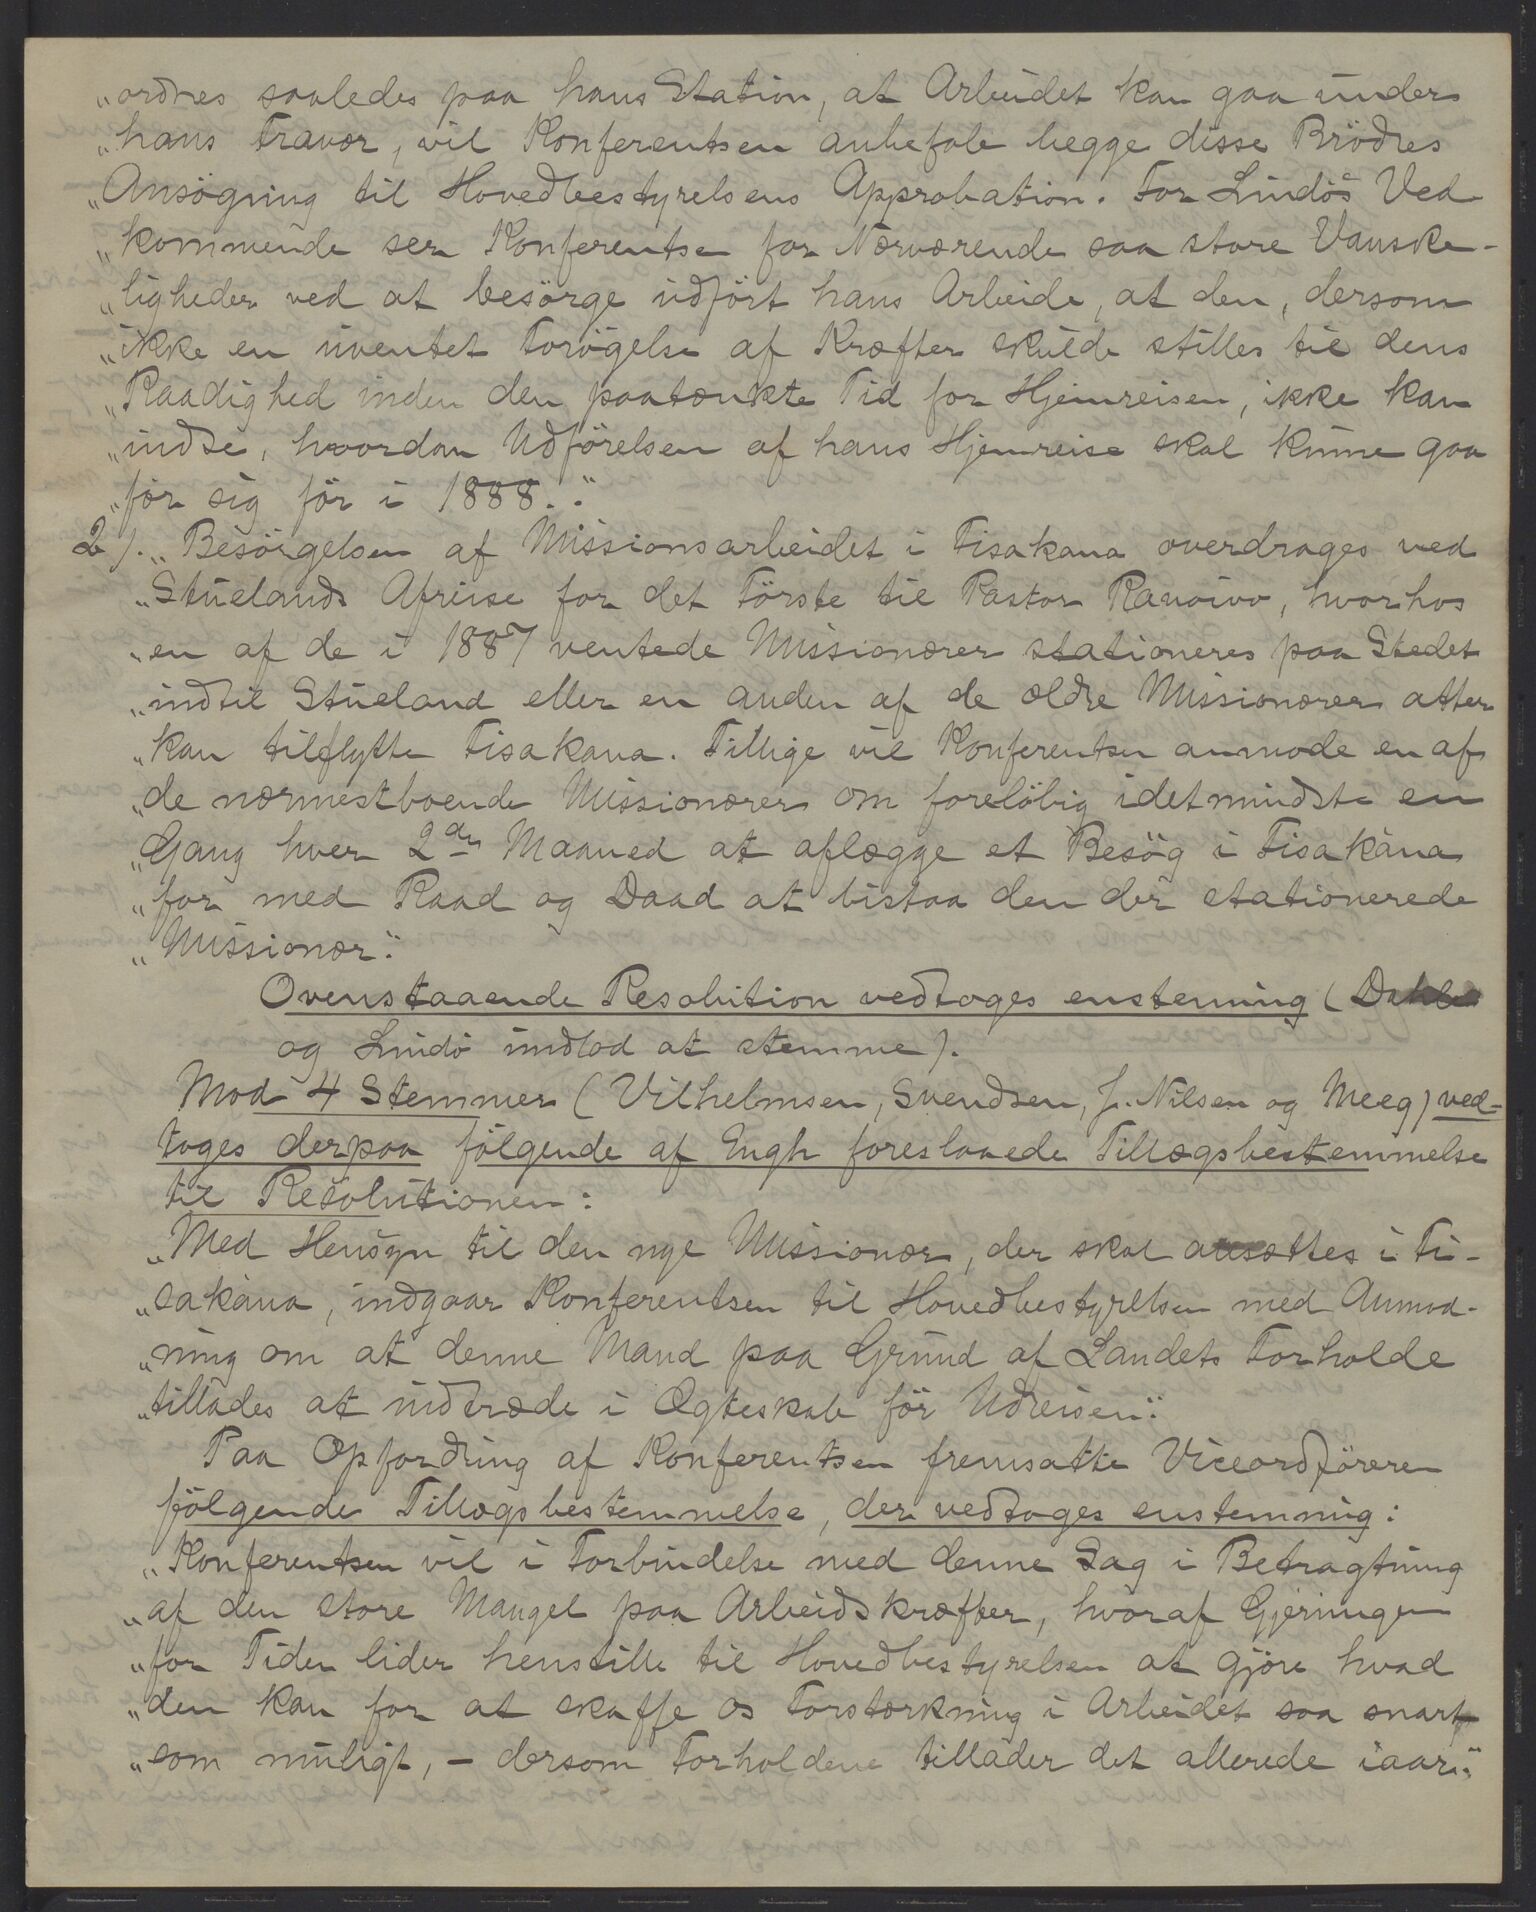 „ordnes saaledes paa hans Station, at Arbeidet kan gaa under
„hans Fravær, vil Konferentsen anbefale begge disse Brödres
„Ansögning til Hovedbestyrelsens Approbation. For Lindös Ved-
„kommende ser Konferentsen for Nærværende saa store Vanske-
„ligheder ved at besörge udfört hans Arbeide, at den, dersom
„ikke en uventet Forögelse af Kræfter skulde stilles til dens
„Raadighed inden den paatænkte Tid for Hjemreisen, ikke kan
„indse, hvordan Udförelsen af hans Hjemreise skal kunne gaa
„for sig för i 1888.."
2). „Besörgelsen af Missionsarbeidet i Fisakana overdrages ved
„Stuelands Afreise for det Förste til Pastor Ranoivo, hvorhos
„en af de i 1887 ventede Missionærer stationeres paa Stedet
„indtil Stueland eller en anden af de ældre Missionærer atter
„kan tilflytte Fisakana. Tillige vil Konferentsen anmode en af
„de nærmestboende Missionærer om forelöbig idetmindste en
„Gang hver 2den Maaned at aflægge et Besög i Fisakána
„for med Raad og Daad at bistaa den der stationerede
„Missionær."
Ovenstaaende Resolution vedtoges enstemmig (Dahle
og Lindö undlod at stemme).
Mod 4 Stemmer (Vilhelmsen, Svendsen, J. Nilsen og Meeg) ved-
toges derpaa fölgende af Engh foreslaaede Tillægsbestemmelse
til Resolutionen:
„Med Hensyn til den nye Missionær, der skal ansættes i Fi-
„sakána, indgaar Konferentsen til Hovedbestyrelsen med Anmod-
„ning om at denne Mand paa Grund af Landets Forholde
„tillades at indtræde i Ægteskab för Udreisen."
Paa Opfordring af Konferentsen fremsatte Viceordföreren
fölgende Tillægsbestemmelse, der vedtoges enstemmig:
„Konferentsen vil i Forbindelse med denne Sag i Betragtning
„af den store Mangel paa Arbeidskræfter, hvoraf Gjerningen
„for Tiden lider henstille til Hovedbestyrelsen at gjöre hvad
„den kan for at skaffe os Forstærkning i Arbeidet saa snart
„som muligt, – dersom Forholdene tillader det allerede iaar."